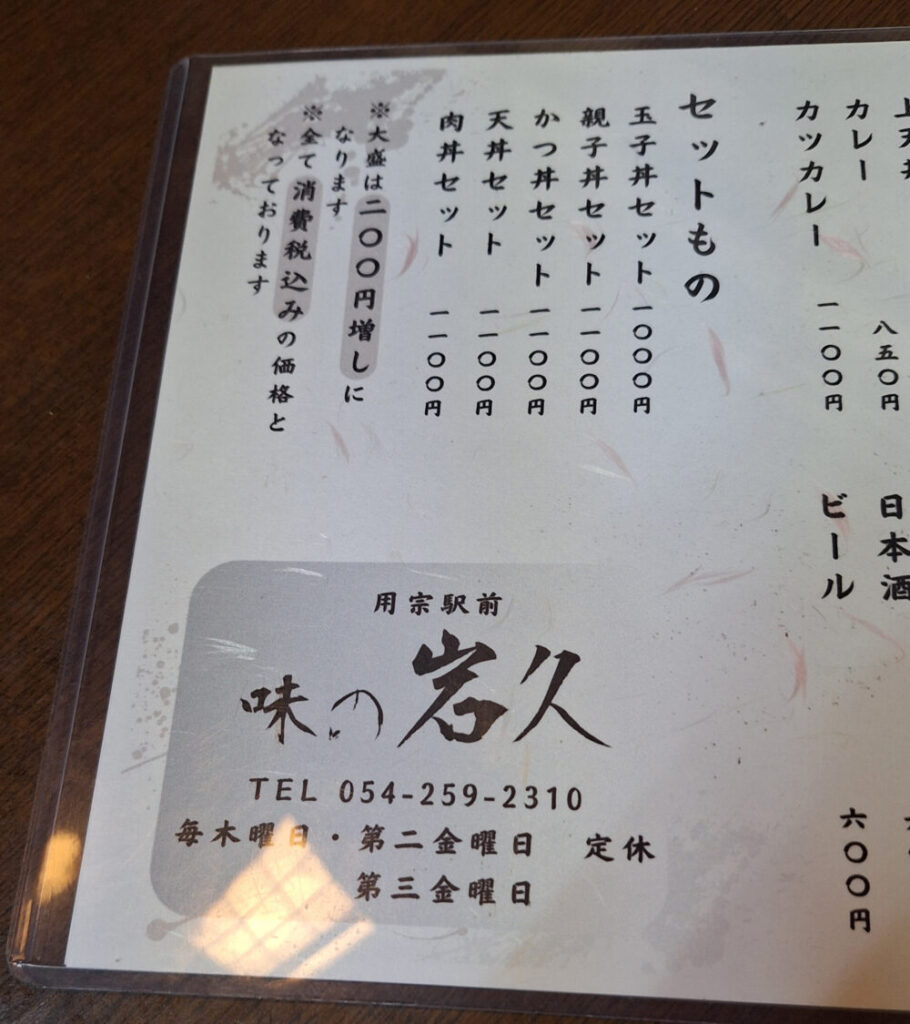 カレー
八五〇円
カツカレー
一一〇〇円
日本酒
ビール
六〇〇円
セットもの
玉子丼セット 一〇〇〇円
親子丼セット 一一〇〇円
かつ丼セット 一一〇〇円
天丼セット 一一〇〇円
肉丼セット 一一〇〇円
※大盛は二〇〇円増しに
なります
※全て消費税込みの価格と
なっております
用宗駅前
味の岩久
TEL 054-259-2310
毎木曜日・第二金曜日 定休
第三金曜日